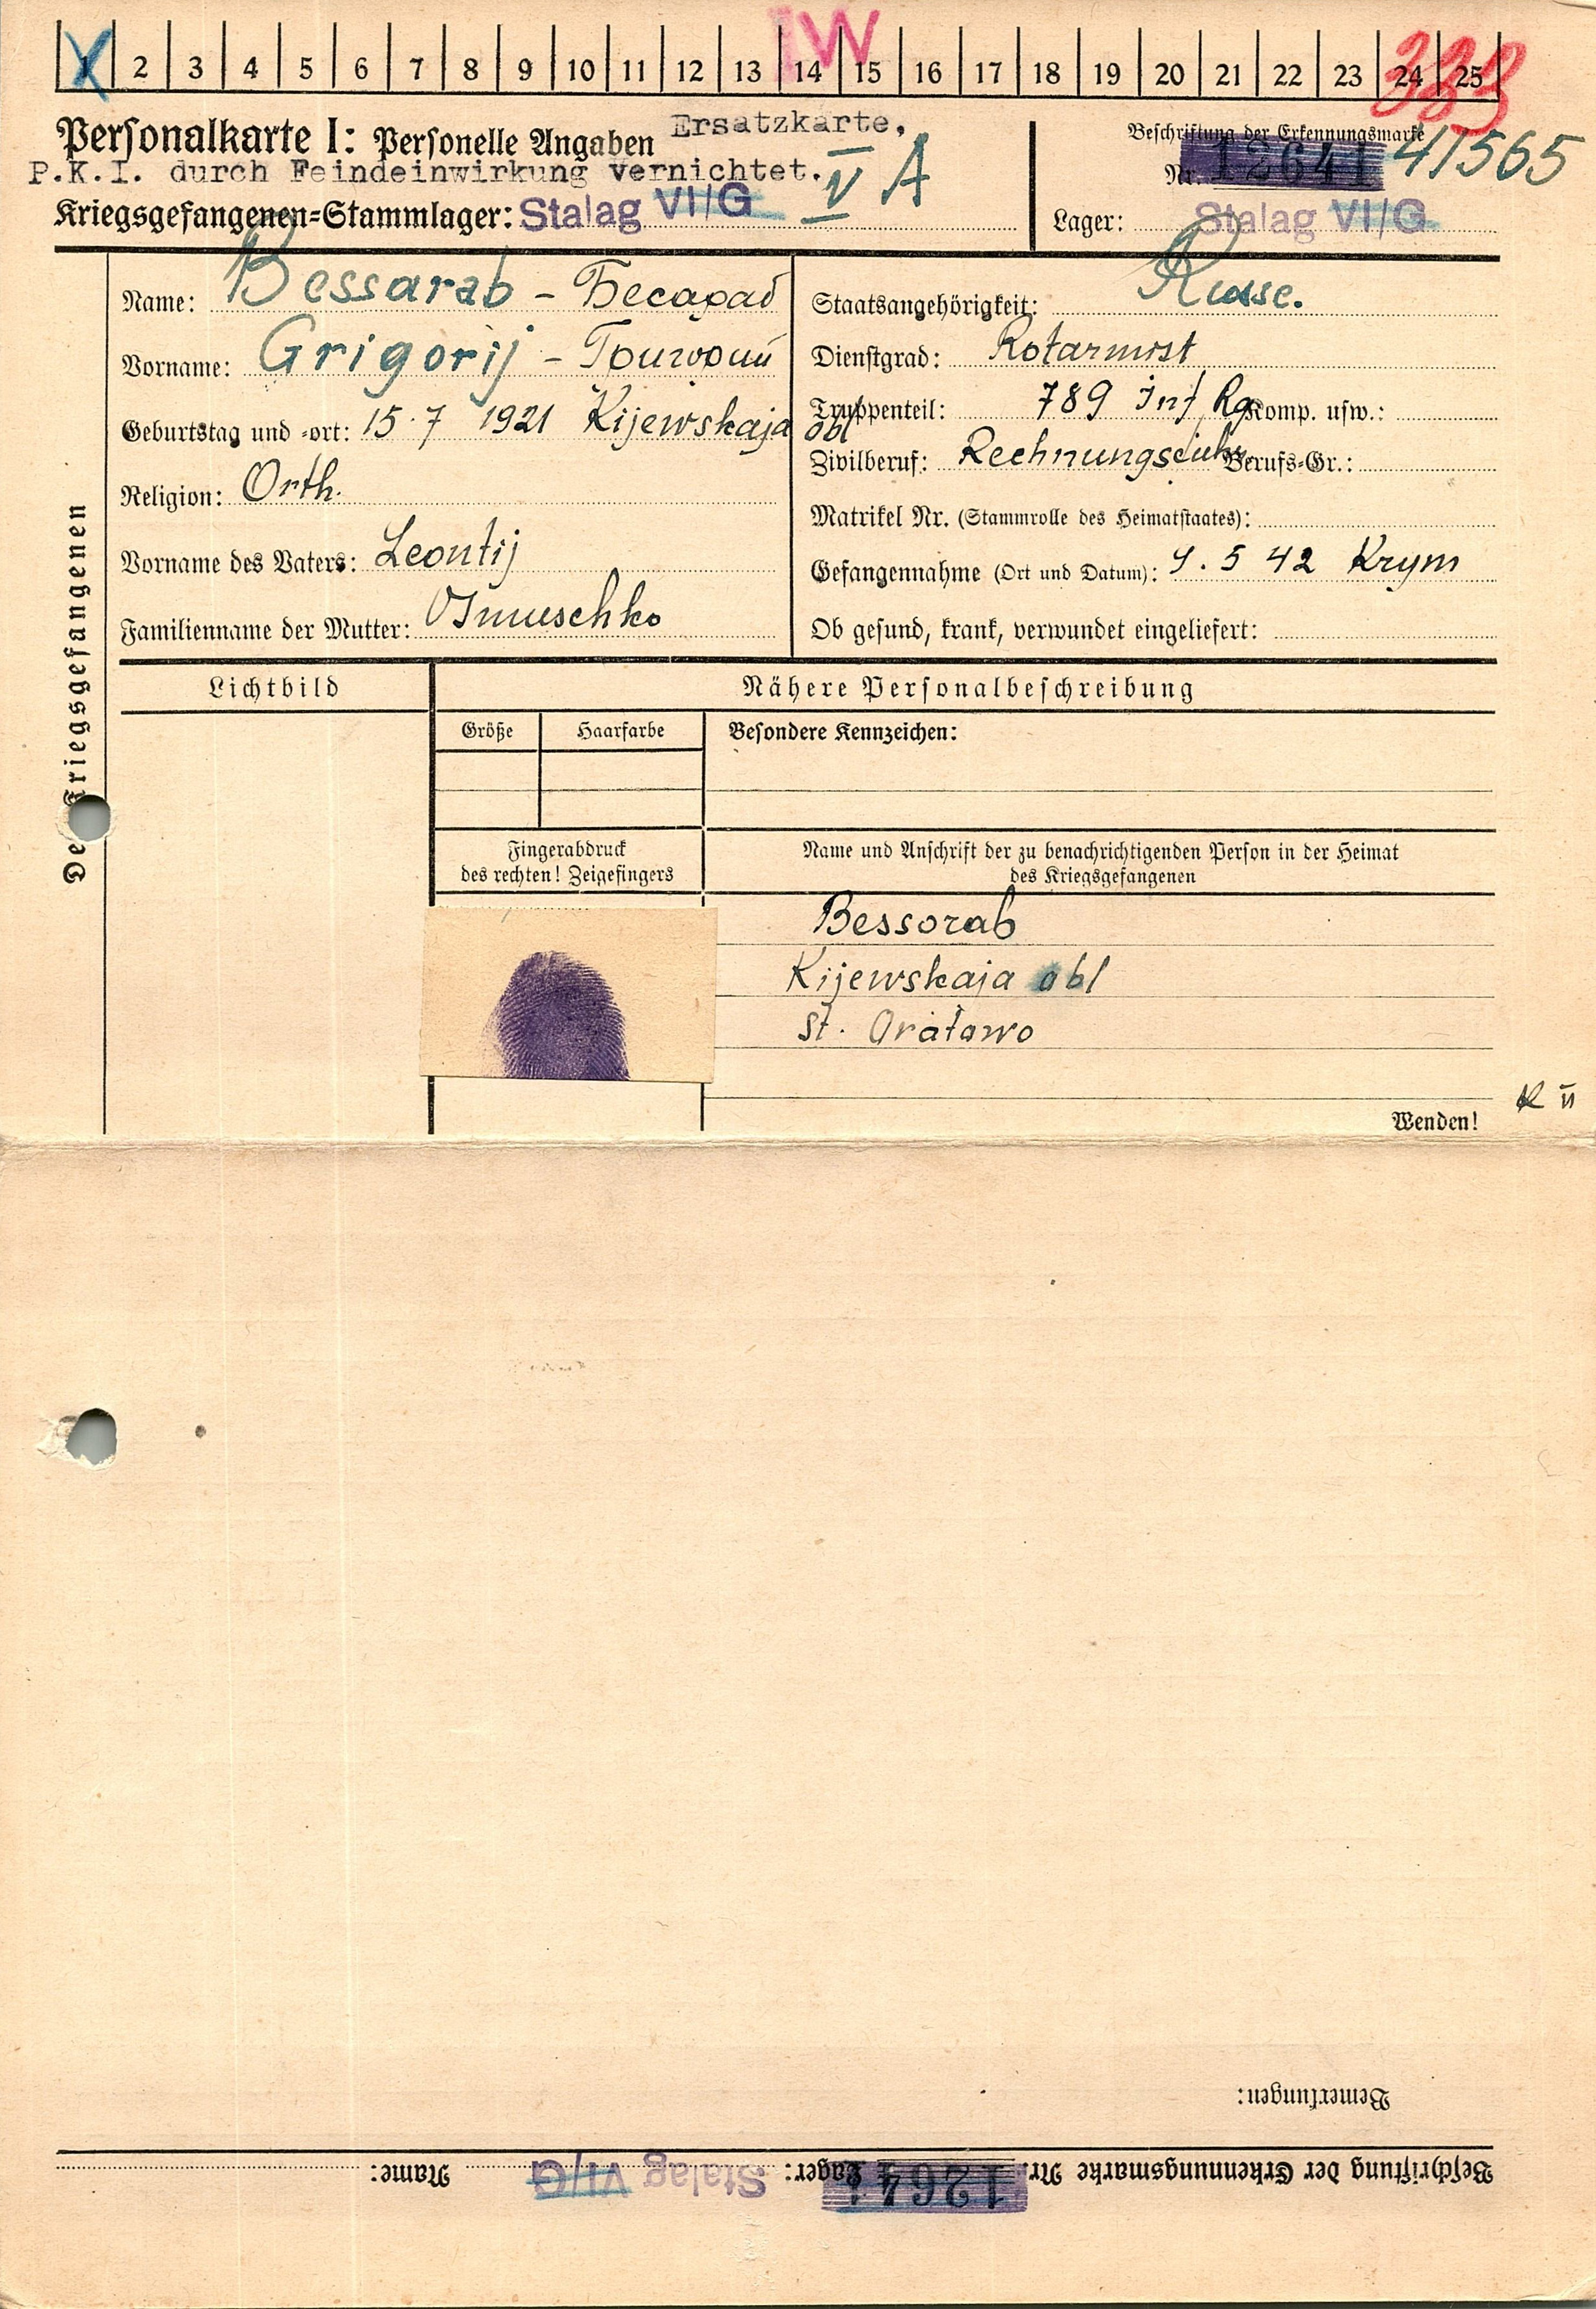 1 2 3 4 5 6 7 8 9 10 11 12 13 14 15 16 17 18 19 20 21 22 23 24 25
W
Personalkarte I: Personelle Angaben Ersatzkarte,
P.K.I. durch Feindeinwirkung vernichtet.
V A
Kriegsgefangenen=Stammlager: Stalag VI/G
Beschriftung der Erkennungsmarke
Nr. 12641 41565
Lager: Stalag VI/G
Des Kriegsgefangenen
Name: Bessarab - Бесараб
Vorname: Grigorij - Григорий
Geburtstag und -ort: 15.7 1921 Kijewskaja obl
Religion: Orth.
Vorname des Vaters: Leontij
Familienname der Mutter:
Staatsangehörigkeit: Russe.
Dienstgrad: Rotarmist
Truppenteil: 789 Inf Rg Komp. usw.:
Zivilberuf: Berufs=Gr.:
Matrikel Nr. (Stammrolle des Heimatstaates):
Gefangennahme (Ort und Datum): 9. 5 42 Krym
Ob gesund, krank, verwundet eingeliefert:
Lichtbild
Nähere Personalbeschreibung
Größe Haarfarbe Besondere Kennzeichen:
Fingerabdruck
des rechten! Zeigefingers
Name und Anschrift der zu benachrichtigenden Person in der Heimat
des Kriegsgefangenen
Bessorab
Kijewskaja obl
St. Oratowo
Wenden!
Bemerkungen:
Beschriftung der Erkennungsmarke Nr. 12641 Lager: Stalag VI/G Name: